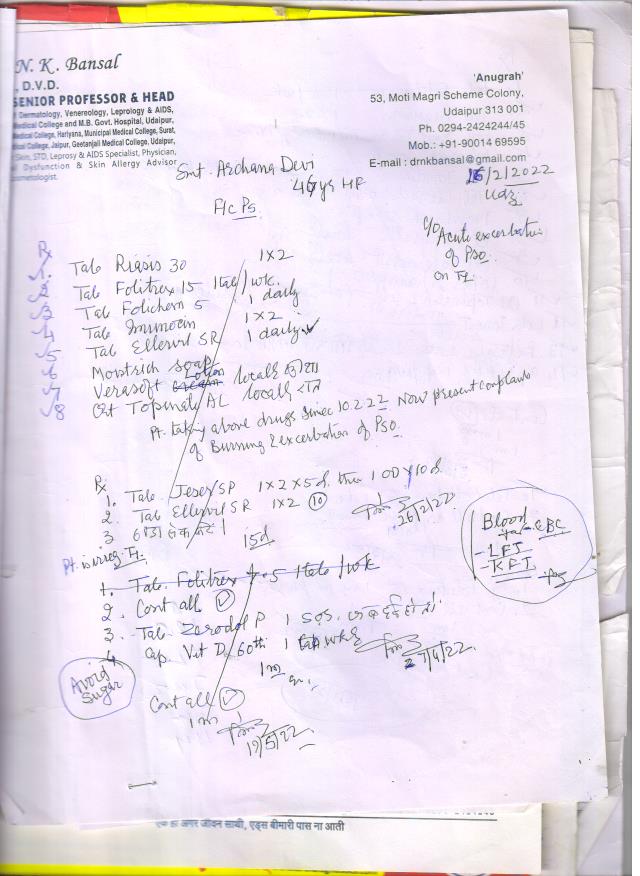 N. K. Bansal
, D.V.D.
SENIOR PROFESSOR & HEAD
Dermatology, Venereology, Leprology & AIDS,
Medical College and M.B. Govt. Hospital, Udaipur,
Medical College, Hariyana, Municipal Medical College, Surat,
ical College, Jaipur, Geetanjali Medical College, Udaipur,
Skin, STD, Leprosy & AIDS Specialist, Physician,
Dysfunction & Skin Allergy Advisor
smetologist.
'Anugrah'
53, Moti Magri Scheme Colony,
Udaipur 313 001
Ph. 0294-2424244/45
Mob.: +91-90014 69595
E-mail : drnkbansal@gmail.com
16/2/2022
Udz
Smt. Archana Devi
46 yrs HF
F/c Ps
C/o Acute excerbation
of Pso
on Tt
Rx
1. Tab Riasis 30 1 x 2
2 Tab Folitrex 15 1 tab/wk.
3 Tab Folichem 5 1 daily
4 Tab Immunocin 1 x 2
5 Tab Ellervit SR 1 daily
6 Moistrich soap
7 Verasoft Lotion locally
8 Oit Topinate AL locally रात
Pt. taking above drugs since 10.2.22 Now present complaints
of Burning & excerbation of Pso.
Rx
1. Tab. SP 1 x 2 x 5 d. then 1 OD x 10 d.
2. Tab Ellervit SR 1 x 2 10
3
15d
26/2/22
Blood
CBC
- LFT
- KFT
Pt. is irreg. Tt.
1. Tab. Folitrex 7.5 1 tab/wk
2. Cont all
3. Tab Zerodol P 1 SOS.
4 Cap. Vit D 60th 1 wkly
1 m
27/4/22
Avoid
Sugar
Cont all
1 m
19/5/22
एड्स बीमारी पास ना आती